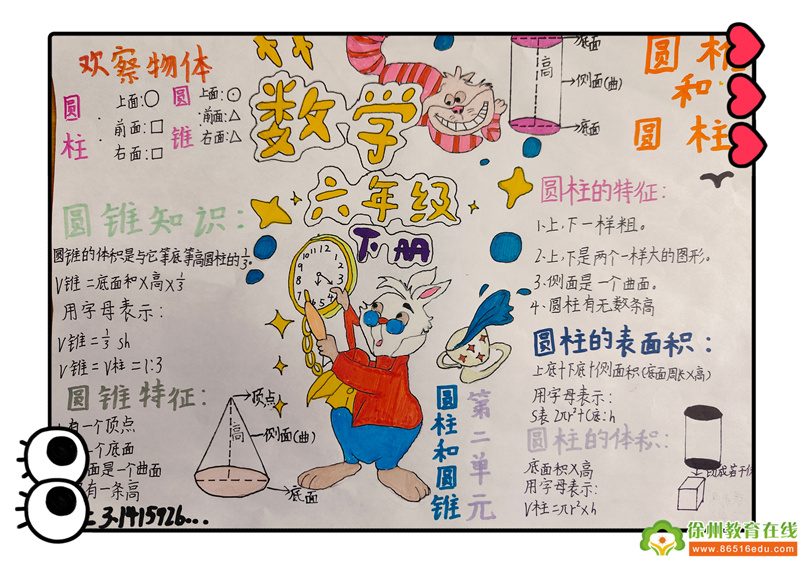 欢察物体
圆柱
上面:○
前面:□
右面:□
圆锥
上面:⊙
前面:△
右面:△
数学
六年级
下册
底面
高
侧面(曲)
底面
圆柱
和
圆柱
圆锥知识:
圆锥的体积是与它等底等高圆柱的1/3。
V锥=底面和X高X1/3
用字母表示:
V锥=1/3 sh
V锥=V柱=1:3
圆锥特征:
有一个顶点
个底面
面是一个曲面
有一条高
3.1415926...
顶点
高
侧面(曲)
底面
10 11 12 1 2 3 4 5 6 7 8 9
圆柱和圆锥
第二单元
圆柱的特征:
1.上,下一样粗。
2.上,下是两个一样大的图形。
3.侧面是一个曲面。
4.圆柱有无数条高
圆柱的表面积:
上底+下底+侧面积(底面周长X高)
用字母表示:
S表2πr²+C底:h
圆柱的体积:
底面积X高
用字母表示:
V柱=πr²xh
切成若干份
徐州教育在线
www.86516edu.com